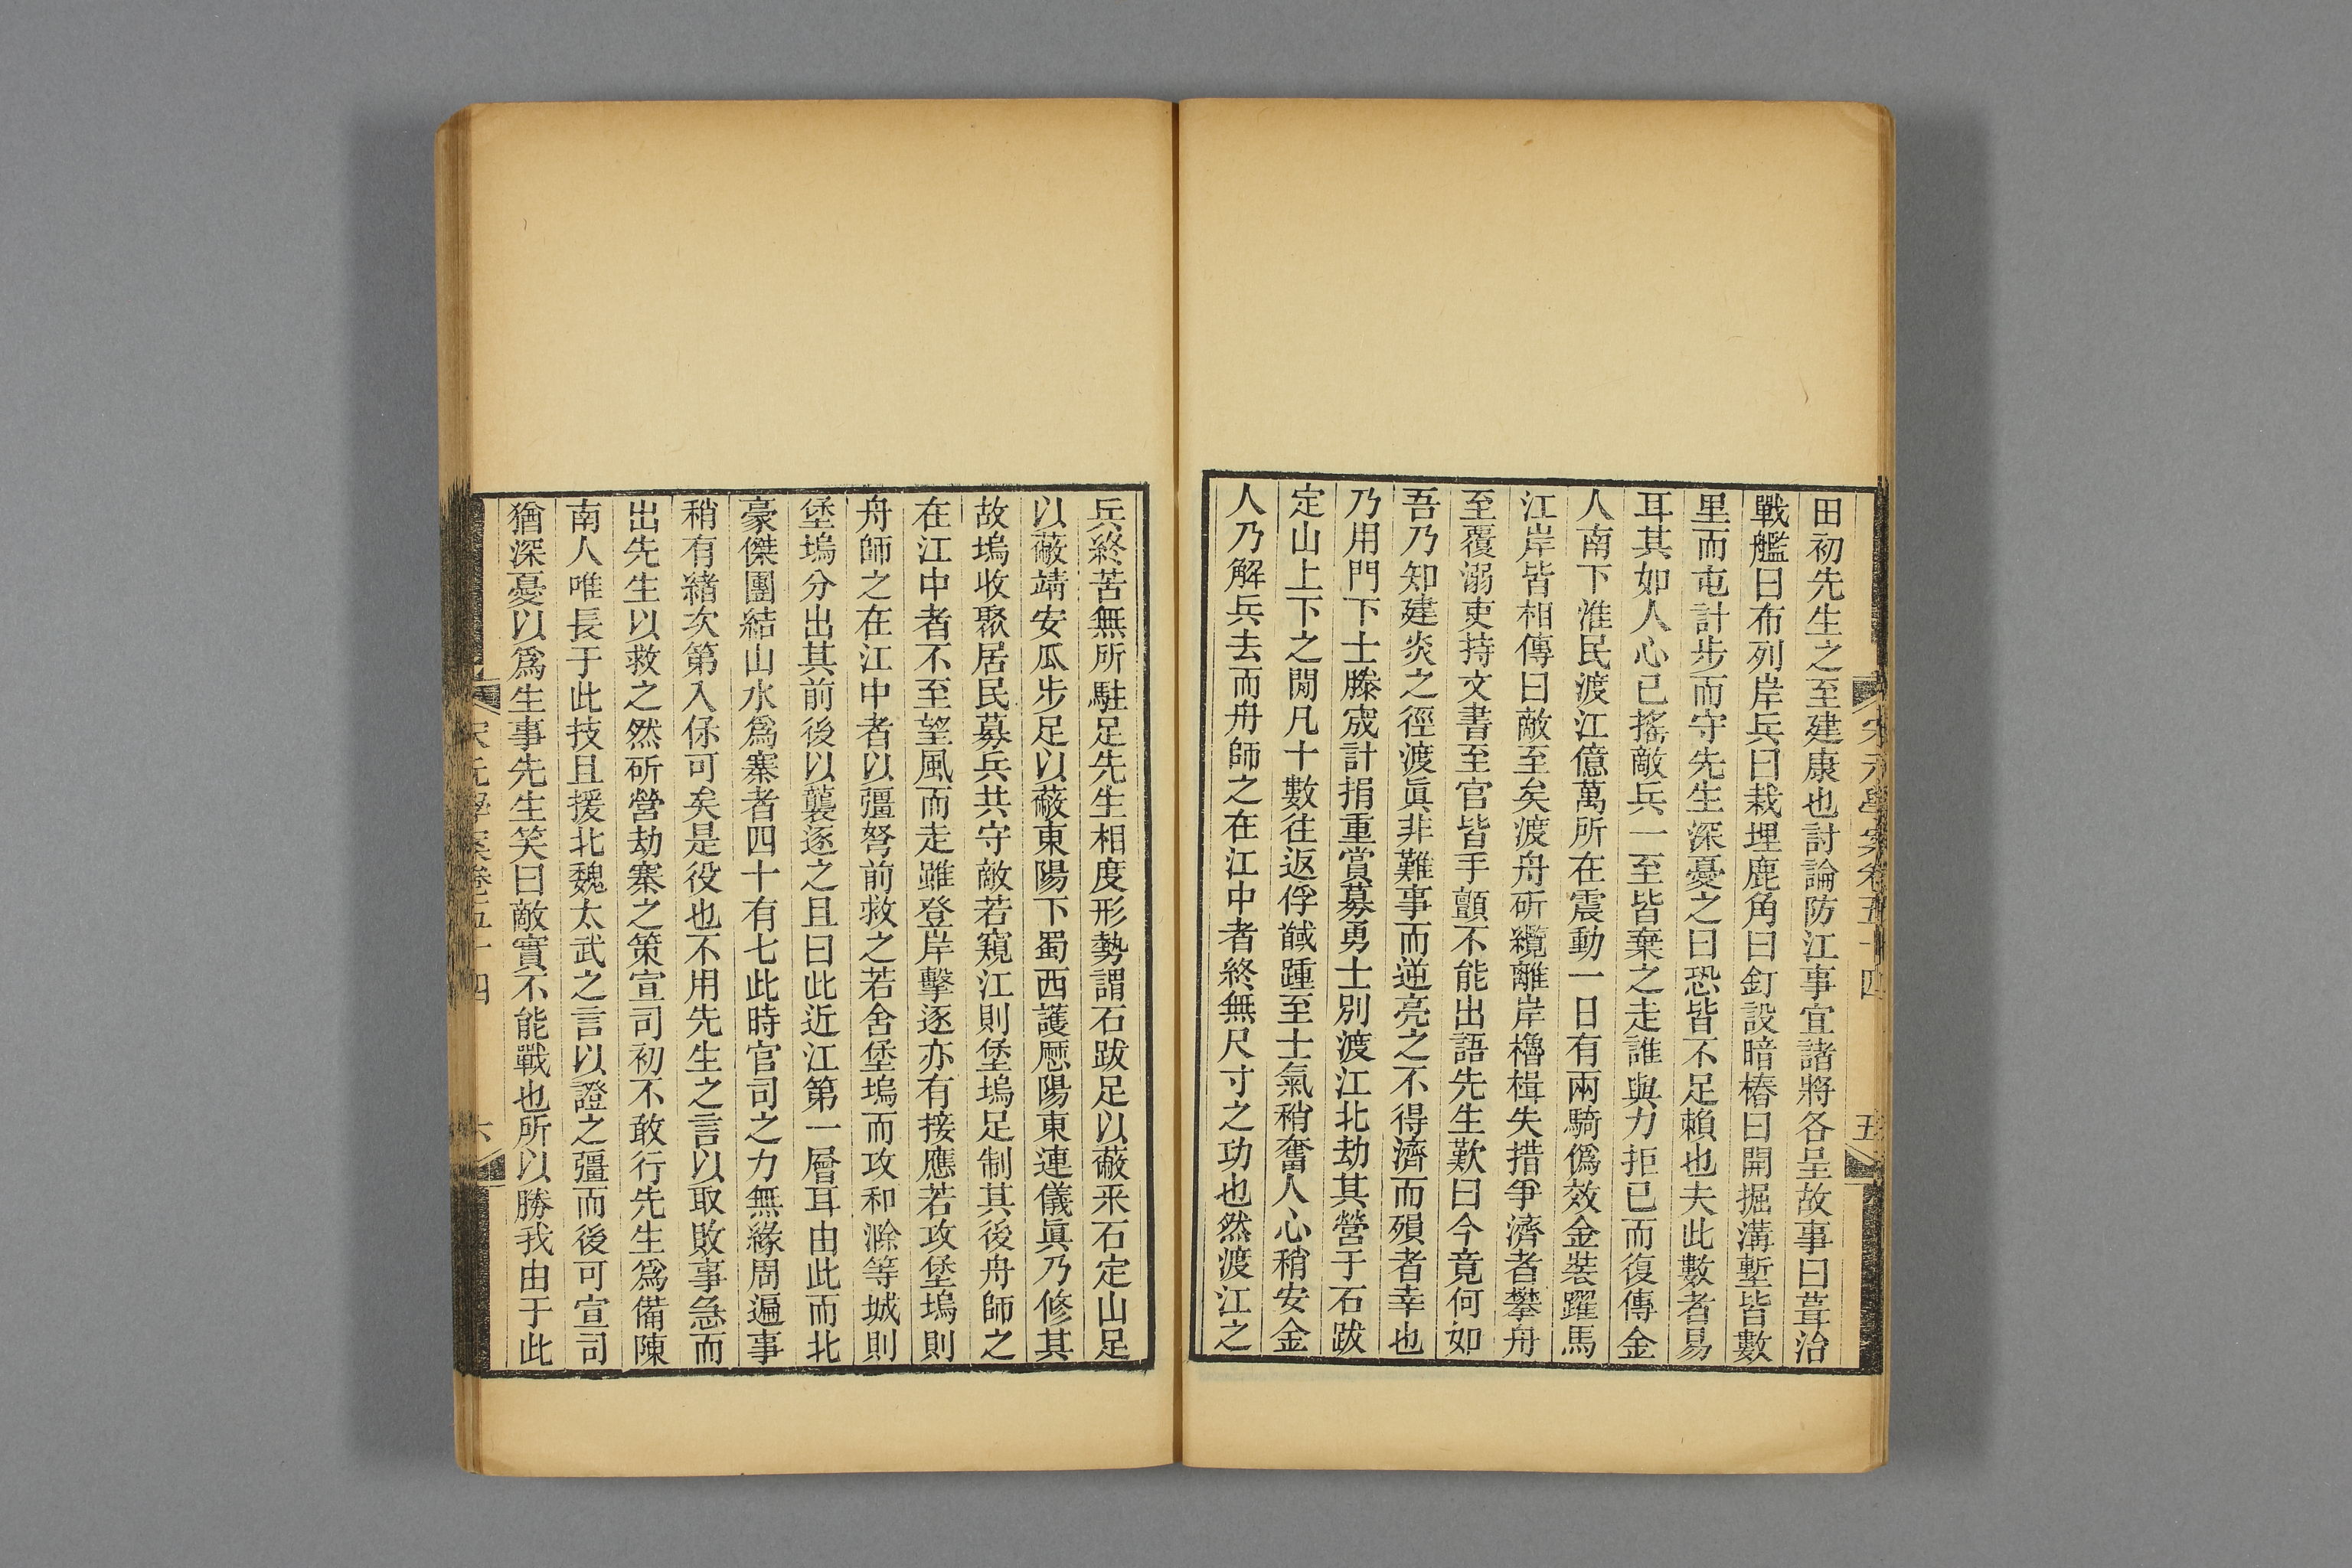 宋元學案卷五十四
五
田初先生之至建康也討論防江事宜諸將各呈故事曰葺治
戰艦曰布列岸兵曰栽埋鹿角曰釘設暗樁曰開掘溝塹皆數
里而屯計步而守先生深憂之曰恐皆不足賴也夫此數者易
耳其如人心已搖敵兵一至皆棄之走誰與力拒已而復傳金
人南下淮民渡江億萬所在震動一日有兩騎僞效金裝躍馬
江岸皆相傳曰敵至矣渡舟斫纜離岸櫓楫失措爭濟者攀舟
至覆溺吏持文書至官皆手顫不能出語先生歎曰今竟何如
吾乃知建炎之徑渡眞非難事而逆亮之不得濟而殞者幸也
乃用門下士滕宬計捐重賞募勇士別渡江北劫其營于石跋
定山上下之閒凡十數往返俘馘踵至士氣稍奮人心稍安金
人乃解兵去而舟師之在江中者終無尺寸之功也然渡江之
兵終苦無所駐足先生相度形勢謂石跋足以蔽采石定山足
以蔽靖安瓜步足以蔽東陽下蜀西護歷陽東連儀眞乃修其
故塢收聚居民募兵共守敵若窺江則堡塢足制其後舟師之
在江中者不至望風而走雖登岸擊逐亦有接應若攻堡塢則
舟師之在江中者以彊弩前救之若舍堡塢而攻和滁等城則
堡塢分出其前後以襲逐之且曰此近江第一層耳由此而北
豪傑團結山水爲寨者四十有七此時官司之力無緣周遍事
稍有緒次第入係可矣是役也不用先生之言以取敗事急而
出先生以救之然斫營劫寨之策宣司初不敢行先生爲備陳
南人唯長于此技且援北魏太武之言以證之彊而後可宣司
猶深憂以爲生事先生笑曰敵實不能戰也所以勝我由于此
宋元學案卷五十四
六